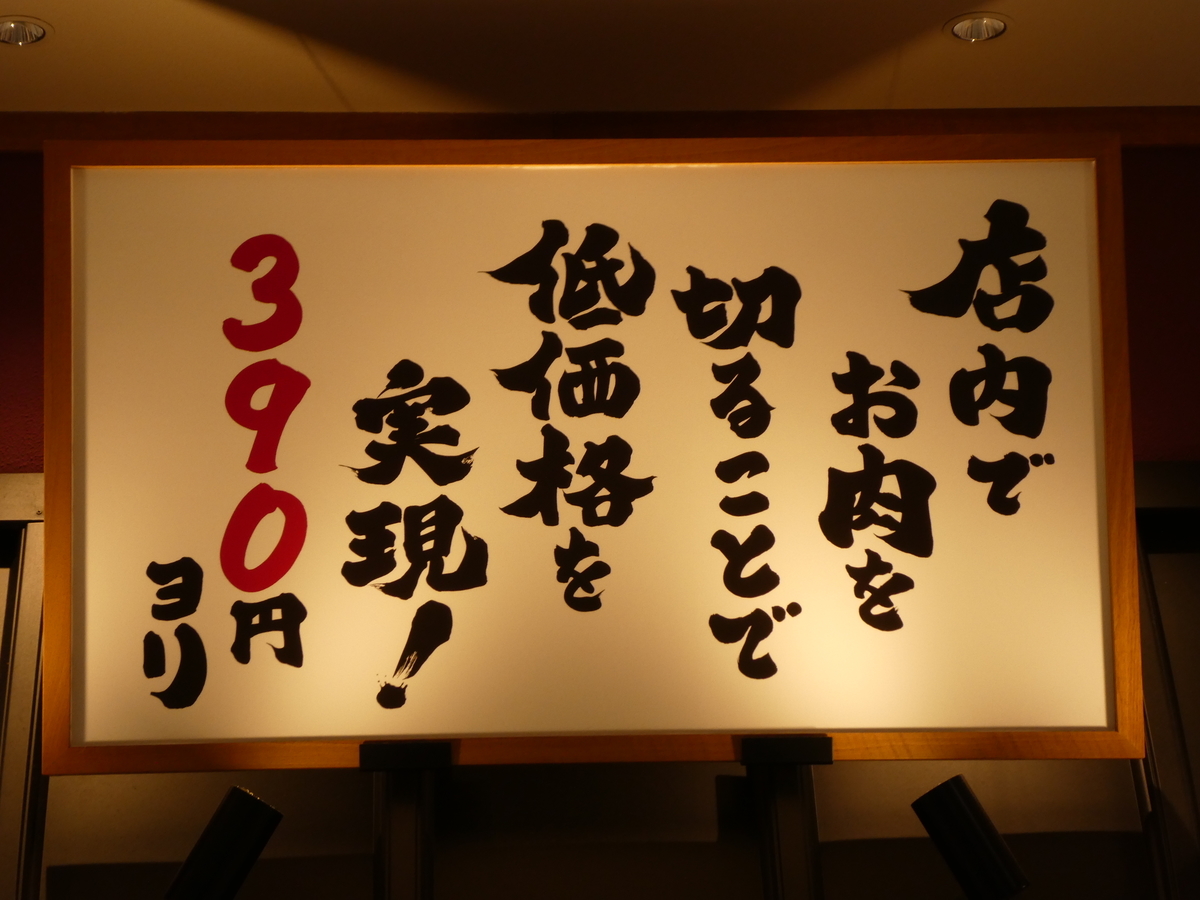 店内で
お肉を
切ることで
低価格を
実現!
390円
ヨリ